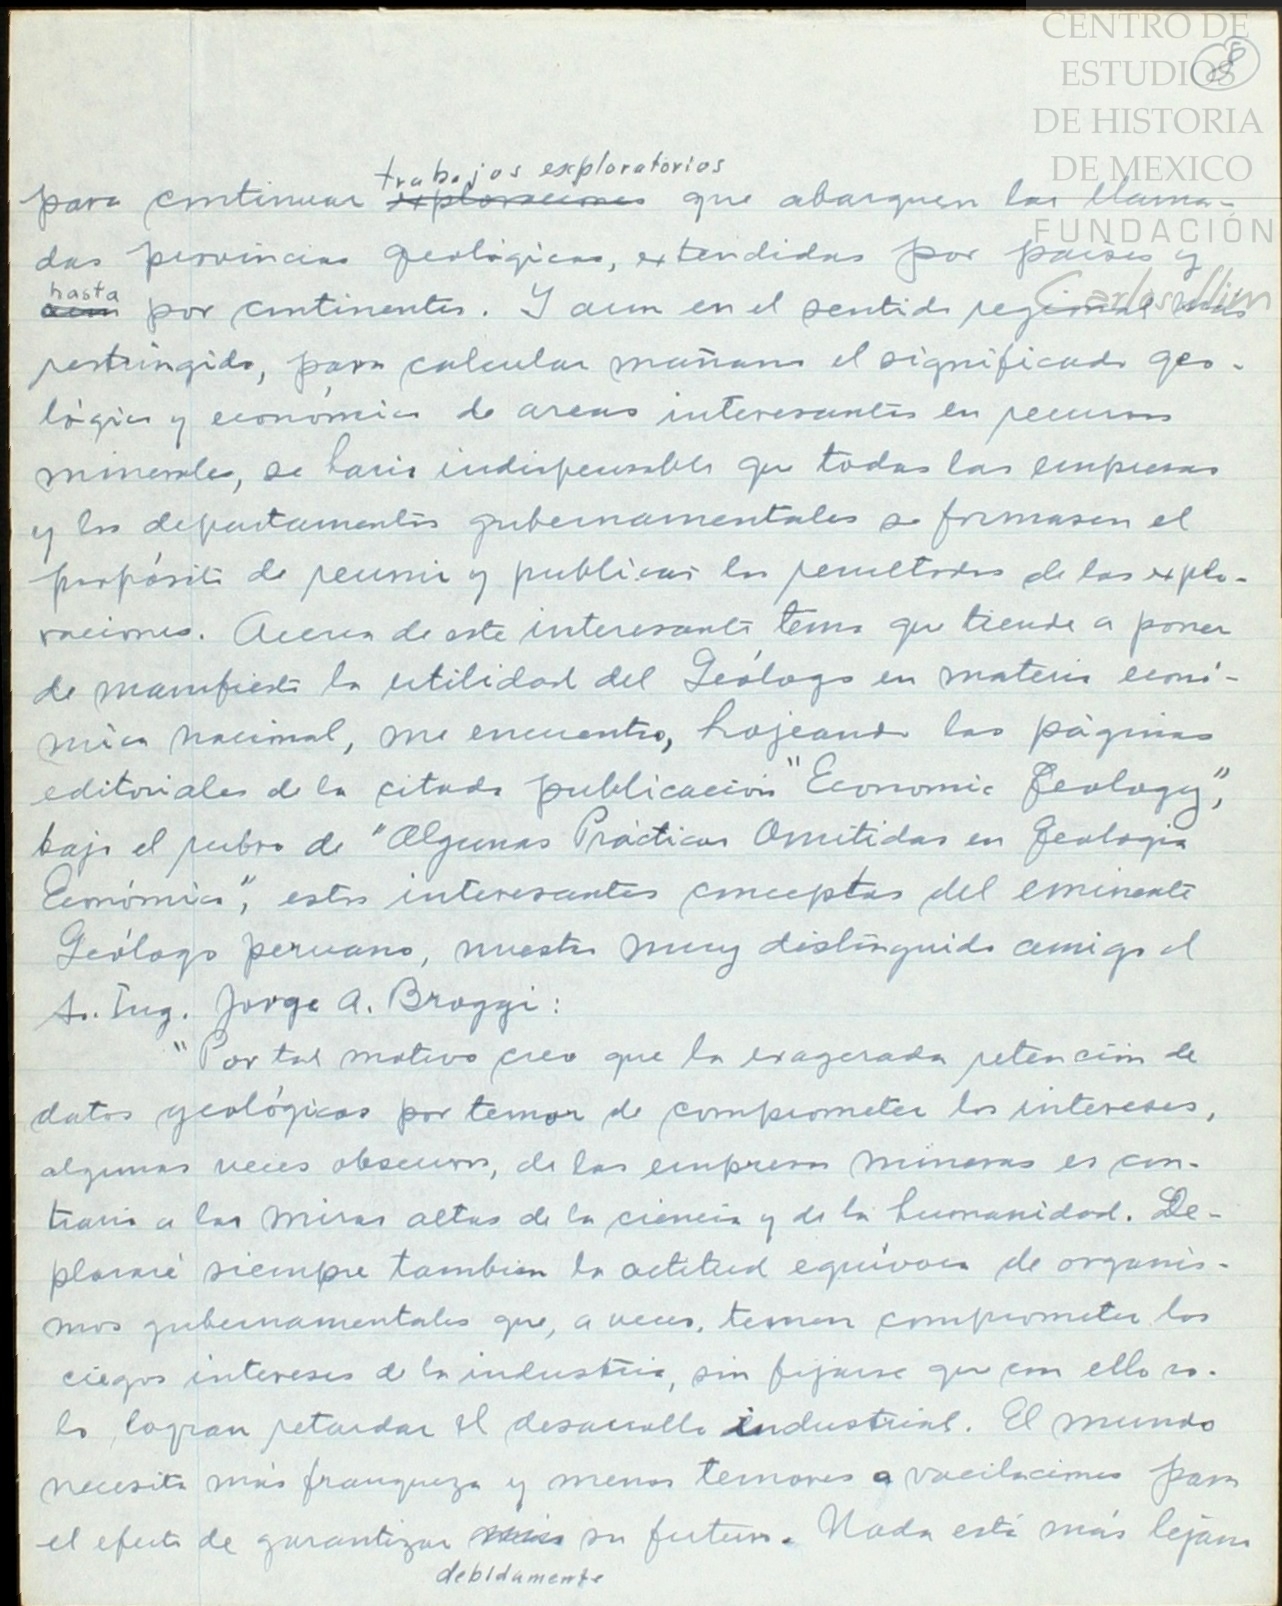 CENTRO DE
ESTUDIOS
DE HISTORIA
DE MEXICO
FUNDACIÓN
Carlos Slim
8
trabajos exploratorios
para continuar exploraciones que abarquen las llama-
das provincias geológicas, extendidas por países y
hasta
aun por continentes. Y aun en el sentido regional más
restringido, para calcular mañana el significado geo-
lógico y económico de areas interesantes en recursos
minerales, se haria indispensable que todas las empresas
y los departamentos gubernamentales se formasen el
propósito de reunir y publicar los resultados de las explo-
raciones. Acerca de este interesante tema que tiende a poner
de manifiesto la utilidad del Geólogo en materia econó-
mica nacional, me encuentro, hojeando las páginas
editoriales de la citada publicación "Economic Geology",
bajo el rubro de "Algunas Prácticas Omitidas en Geologia
Económica", estos interesantes conceptos del eminente
Geólogo peruano, nuestro muy distinguido amigo el
Sr. Ing. Jorge A. Broggi:
"Por tal motivo creo que la exagerada retención de
datos geológicos por temor de comprometer los intereses,
algunas veces obscuros, de las empresas mineras es con-
trario a las miras altas de la ciencia y de la humanidad. De-
ploraré siempre tambien la actitud equívoca de organis-
mos gubernamentales que, a veces, temen comprometer los
ciegos intereses de la industria, sin fijarse que con ello so-
lo logran retardar el desarrollo industrial. El mundo
necesita más franqueza y menos temores o vacilaciones para
el efecto de garantizar su futuro. Nada está más lejano
debidamente